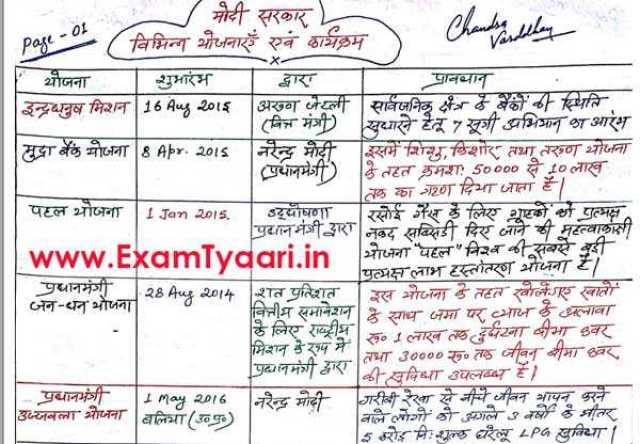 Page - 01
मोदी सरकार
Chandra Varddhay
विभिन्न योजनाएँ एवं कार्यक्रम
योजना शुभारंभ द्वारा प्रावधान
इन्द्रधनुष मिशन 16 Aug 2015 अरुण जेटली सार्वजनिक क्षेत्र के बैंकों की स्थिति
(वित्त मंत्री) सुधारने हेतु 7 सूत्री अभियान का आरंभ
मुद्रा बैंक योजना 8 Apr. 2015 नरेन्द्र मोदी इसमें शिशु, किशोर तथा तरुण योजना
(प्रधानमंत्री) के तहत क्रमशः 50000 से 10 लाख
तक का ऋण दिया जाता है।
पहल योजना 1 Jan 2015. उद्घोषणा रसोई गैस के लिए ग्राहकों को प्रत्यक्ष
प्रधानमंत्री द्वारा नकद सब्सिडी दिए जाने की महत्वाकांक्षी
योजना "पहल" विश्व की सबसे बड़ी
www.ExamTyaari.in
प्रत्यक्ष लाभ हस्तांतरण योजना है।
प्रधानमंत्री 28 Aug 2014 शत प्रतिशत इस योजना के तहत खोले गए खातों
जन-धन योजना वित्तीय समावेशन के साथ जमा पर ब्याज के अलावा
के लिए राष्ट्रीय रु० 1 लाख तक दुर्घटना बीमा कवर
मिशन के रूप में तथा 30000 रु० तक जीवन बीमा कवर
प्रधानमंत्री द्वारा की सुविधा उपलब्ध है।
प्रधानमंत्री 1 May 2016 नरेन्द्र मोदी गरीबी रेखा से नीचे जीवन यापन करने
उज्जवला योजना बलिया (उ०प्र०) वाले लोगों को अगले 3 वर्षों के भीतर
5 करोड़ निःशुल्क घरेलू LPG सुविधा।